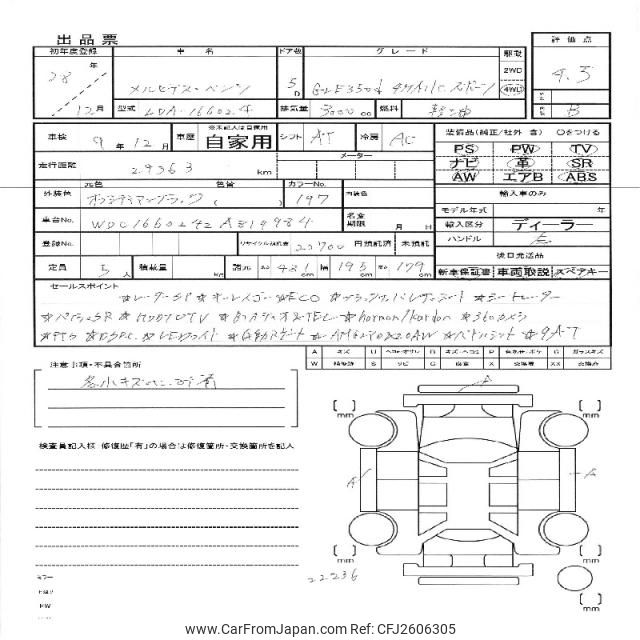 出品票
初年度登録 車名 ドア数 グレード 駆動 評価点
28年 メルセデス・ベンツ 5D GLE350d 4マチック スポーツ 2WD 4.5
4WD
12月 型式 LDA-166024 排気量 3000cc 燃料 軽油 B
車検 9年12月 車歴 ※未記入は自家用 自家用 シフト AT 冷房 AC 装備品(純正/社外 含) ○をつける
PS PW TV
走行距離 29363 km メーター ナビ 革 SR
AW エアB ABS
外装色 元色 色替 カラーNo. 197 内装色 輸入車のみ
オブシディアンブラック ( ) モデル年式 年
車台No. WDC1660242A819984 名変期限 月 日 輸入区分 ディーラー
登録No. リサイクル預託金 20700 円預託済 未預託 ハンドル 右
後日発送品
定員 5人 積載量 kg 諸元 長 481cm 幅 195cm 高 179cm 新車保証書 車両取説 スペアキー
セールスポイント
★レーダーSP ★オーレイゴー ★ECO ★ブラックレザーシート ★シートヒーター
★パノラマSR ★HDDナビTV ★Bカメラ ★TEL ★harman/kardon ★360°カメラ
★PTS ★LEDライト ★自動ゲート ★AMG20AW ★パドルシフト ★9AT
A キズ U ヘコ・オウレ B キズ・ヘコミ P 色あせ・ボケ G ガラスキズ
W 補修跡 S サビ C 腐食 X 交換要 XX 交換済
注意事項・不具合箇所
各小キズヘこみ有
検査員記入様 修復歴「有」の場合は修復箇所・交換箇所を記入
A
[ ] mm [ ] mm
A A
[ ] mm [ ] mm
22236
[ ] mm
ミラー
PW
www.CarFromJapan.com Ref: CFJ2606305